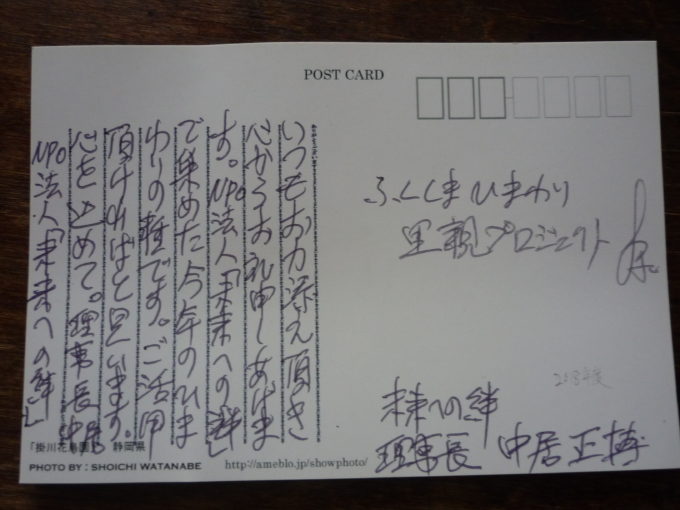 POST CARD
ふくしまひまわり
里親プロジェクト 様
2018年度
未来への絆
理事長 中居正博
いつもお力添え頂き
心からお礼申しあげま
す。NPO法人「未来への絆」
で集めた今年のひま
わりの種です。ご活用
頂ければと思います。
心を込めて。理事長 中居
NPO法人「未来への絆」
「掛川花鳥園」 静岡県
PHOTO BY : SHOICHI WATANABE
http://ameblo.jp/showphoto/